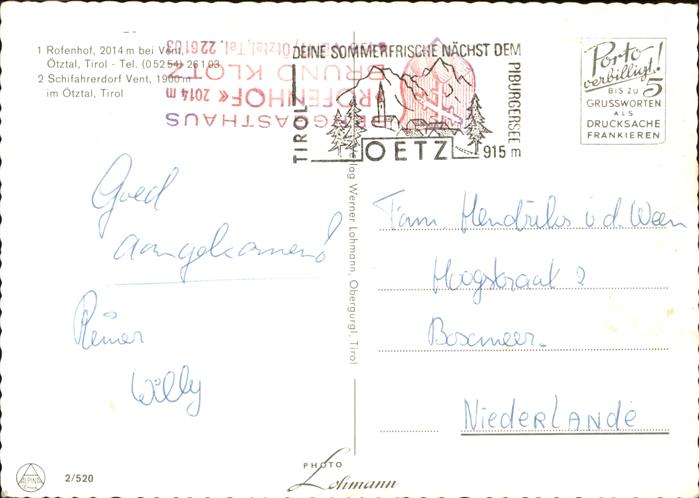 1 Rofenhof, 2014 m bei Vent,
Ötztal, Tirol - Tel. (05254) 26103
2 Schifahrerdorf Vent, 1900 m
im Ötztal, Tirol
DEINE SOMMERFRISCHE NÄCHST DEM
PIBURGERSEE
TIROL
OETZ
915 m
BERGGASTHAUS
»ROFENHOF« 2014 m
BRUNO KLOTZ
Ötztal, Tel. 226103
Porto
verbilligt!
BIS ZU 5
GRUSSWORTEN
ALS
DRUCKSACHE
FRANKIEREN
Goed
aangekomen!
Reinier
Willy
Verlag Werner Lohmann, Obergurgl, Tirol
Fam. Hendriks v d. Ween
Hoogstraat 2
Boxmeer.
NIEDERLANDE
PHOTO
Lohmann
ALPINA
2/520